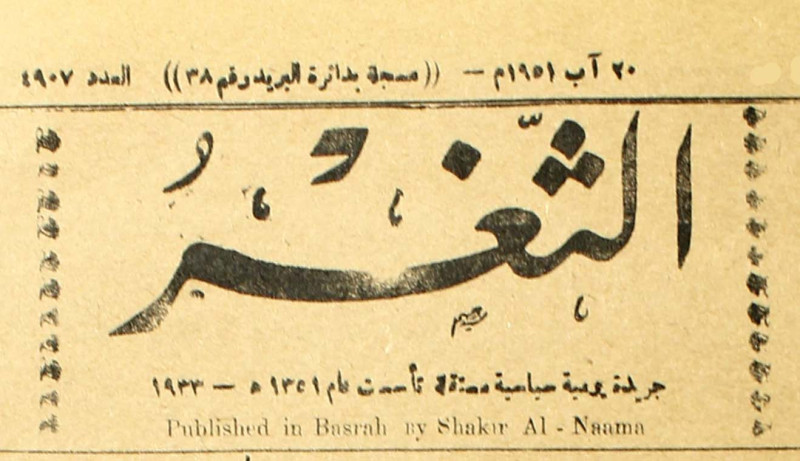 ٢٠ آب ١٩٥١م — ((مسجلة بدائرة البريد رقم ٣٨)) العدد ٤٩٠٧
الثَّغْرُ
جريدة يومية سياسية مستقلة تأسست عام ١٣٥١ ه — ١٩٣٣
Published in Basrah By Shakir Al - Naama